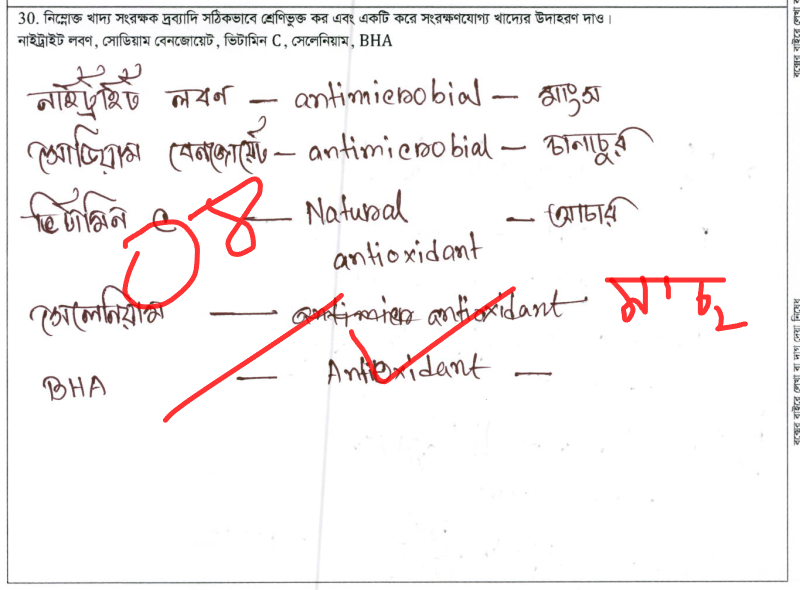 30. নিম্নোক্ত খাদ্য সংরক্ষক দ্রব্যাদি সঠিকভাবে শ্রেণিভুক্ত কর এবং একটি করে সংরক্ষণযোগ্য খাদ্যের উদাহরণ দাও।
নাইট্রাইট লবণ, সোডিয়াম বেনজোয়েট, ভিটামিন C, সেলেনিয়াম, BHA
নাইট্রাইট লবণ — antimicrobial — মাংস
সোডিয়াম বেনজোয়েট — antimicrobial — চানাচুর
ভিটামিন C — Natural — আচার
antioxidant
সেলেনিয়াম — antimicro antioxidant মাছ
BHA — Antioxidant —